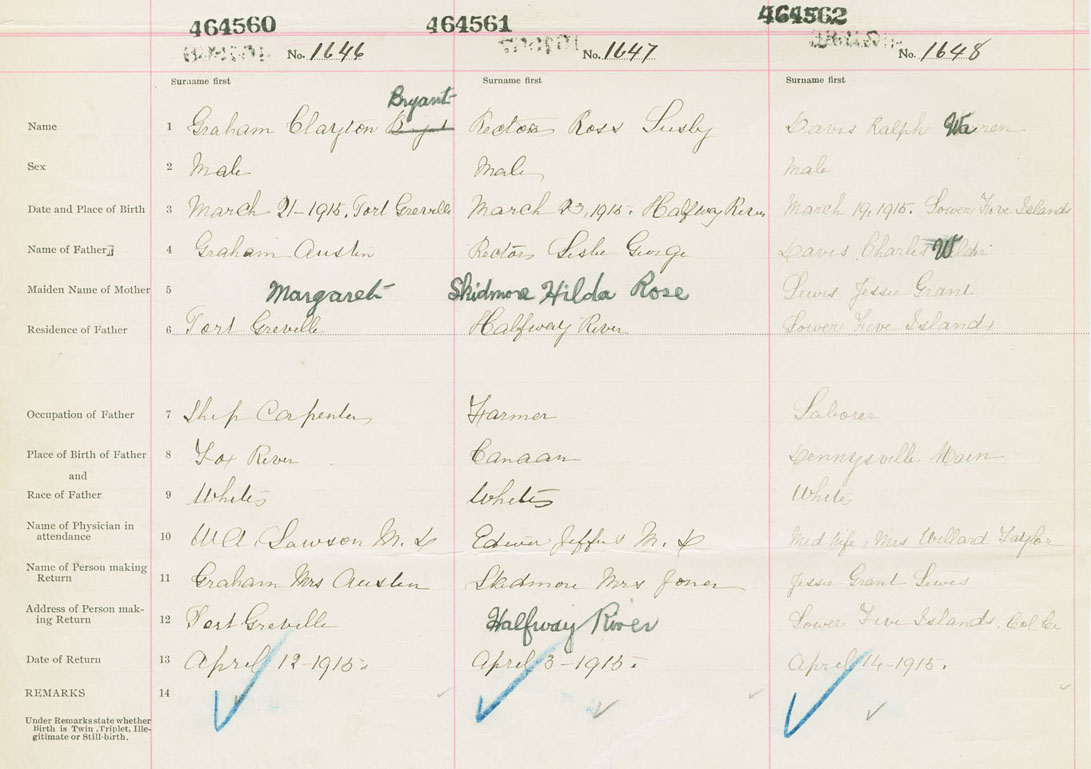 464560 464561 464562
No. 1646 No. 1647 No. 1648
Surname first Surname first Surname first
Bryant
Name 1 Graham Clayton Rector Ross Lusby Davis Ralph Warren
Sex 2 Male Male Male
Date and Place of Birth 3 March 21-1915. Port Greville March 23, 1915. Halfway River March 19, 1915. Lower Five Islands
Name of Father 4 Graham Austin Rector Leslie George Davis Charles
Maiden Name of Mother 5 Margaret Skidmore Hilda Rose Lewis Jessie Grant
Residence of Father 6 Port Greville Halfway River Lower Five Islands
Occupation of Father 7 Ship Carpenter Farmer Laborer
Place of Birth of Father 8 Fox River Canaan Dennysville Main
and
Race of Father 9 White White White
Name of Physician in
attendance 10 W A Lawson M.D Edwin Jeffers M.D Mid wife, Mrs Willard Taylor
Name of Person making
Return 11 Graham Mrs Austin Skidmore Mrs Jones Jessie Grant Lewis
Address of Person mak-
ing Return 12 Port Greville Halfway River Lower Five Islands, Col. Co
Date of Return 13 April 12-1915. April 3-1915. April 14-1915.
REMARKS 14
Under Remarks state whether
Birth is Twin, Triplet, Ille-
gitimate or Still-birth.